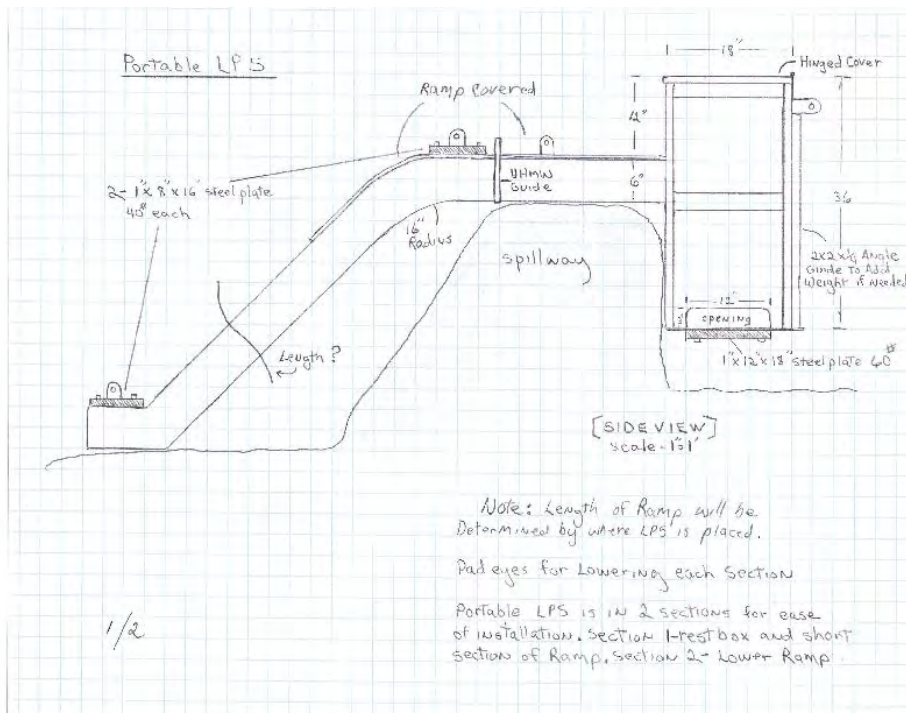 Portable LPS
18"
Hinged Cover
Ramp Covered
12"
2- 1"x 8"x 16" steel plate
40# each
UHMW
Guide
6"
36
16"
Radius
spillway
2x2x¼ Angle
Guide To Add
Weight if Needed
12"
opening
Length?
1"x12"x18" steel plate 60#
[SIDE VIEW]
scale - 1"=1'
Note: Length of Ramp will be
Determined by where LPS is placed.
Pad eyes for Lowering each Section
Portable LPS is in 2 sections for ease
of installation. Section 1-rest box and short
section of Ramp. Section 2- Lower Ramp
1/2